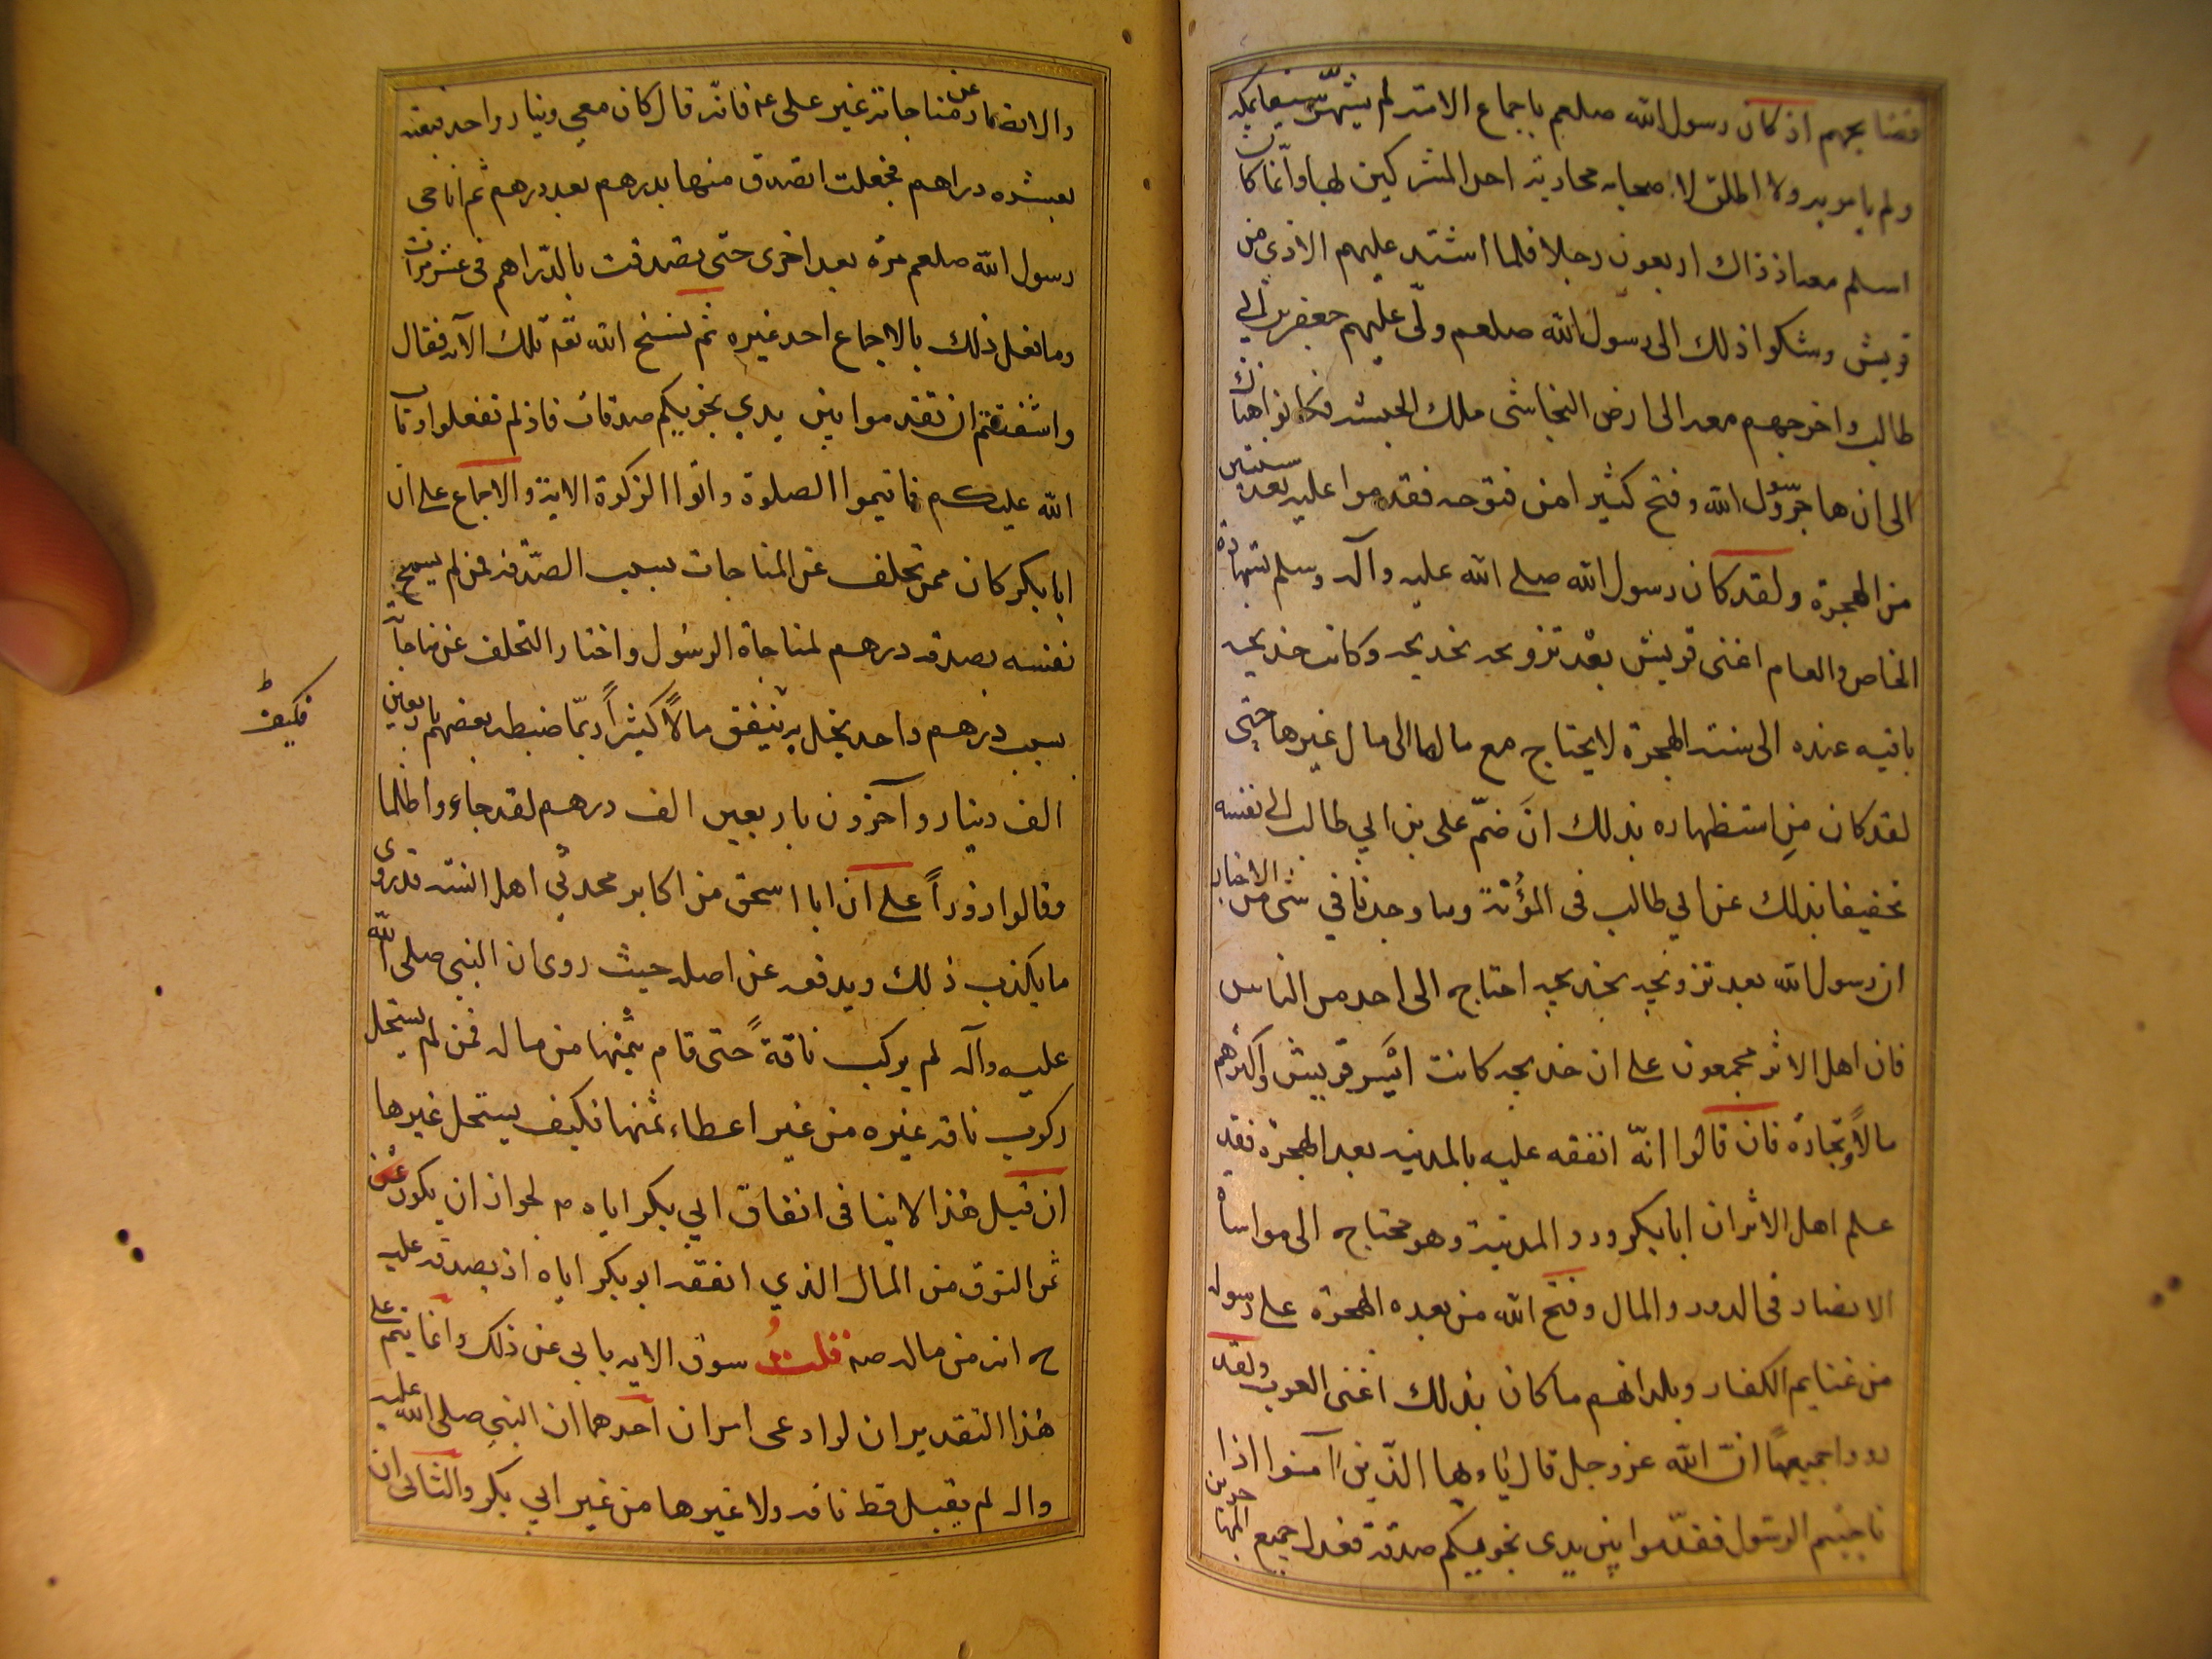 فضايحهم اذ كان رسول الله صلعم باجماع الامة لم يشهر سيفا بمكة
ولم يامر به ولا اطلق لاصحابه محاربة احد المشركين لها وانما كان
اسلم معه اذ ذاك اربعون رجلا فلما اشتد عليهم الاذى من
قريش وشكوا ذلك الى رسول الله صلعم ولّى عليهم جعفر بن ابي
طالب واخرجهم معه الى ارض النجاشى ملك الحبشه فكانوا هناك
الى ان هاجر رسول الله وفتح كثيرا من فتوحه فقدموا عليه بعد سنتين
من الهجرة ولقد كان رسول الله صلى الله عليه وآله وسلم بشهادة
الخاص والعام اغنى قريش بعد تزويجه بخديجه وكانت خديجه
باقيه عنده الى سنة الهجرة لا يحتاج مع مالها الى مال غيرها حتى
لقد كان من استظهاره بذلك ان ضمّ على بن ابي طالب الى نفسه
تخفيفا بذلك عن ابي طالب فى المؤنة وما وجدنا في شئ من الاخبار
ان رسول الله بعد تزويجه بخديجه احتاج الى احد من الناس
فان اهل الاثر مجمعون على ان خديجه كانت ايسر قريش واكثرهم
مالاً وتجارة فان قالوا انّه انفقه عليه بالمدينه بعد الهجرة فقد
علم اهل الاثر ان ابا بكر ورد المدينة وهو محتاج الى مواساة
الانصار فى الدور والمال وفتح الله من بعده الهجرة على رسوله
من غنايم الكفار وبلدانهم ما كان بذلك اغنى العرب ولقد
رووا جميعاً انّ الله عز وجل قال ياءيها الذين آمنوا اذا
ناجيتم الرسول فقدّموا بين يدى نجويكم صدقة فغدا جميع المهاجرين
والانصار عن مناجاته غير على ع فانّه قال كان معي دينار واحد فبعته
بعشره دراهم فجعلت اتصدق منها بدرهم بعد درهم ثم اناجى
رسول الله صلعم مرة بعد اخرى حتى تصدقت بالدّراهم فى عشر مرات
وما فعل ذلك بالاجماع احد غيره ثم نسخ الله تعه تلك الآيه فقال
واشفقتم ان تقدموا بين يدي نجويكم صدقات فاذ لم تفعلوا وتاب
الله عليكم فاقيموا الصلوة واتوا الزكوة الاية والاجماع على ان
ابا بكر كان ممن تخلف عن المناجات بسبب الصّدقه فمن لم يسمح
نفسه بصدقه درهم لمناجاة الرسول واختار التخلف عن مناجاته
بسبب درهم واحد يبخل به ينفق مالاً كثيراً ربمّا ضبطه بعضهم باربعين
فكيف ط
الف دينار وآخرون باربعين الف درهم لقد جاءوا ظلما
وقالوا زوراً على ان ابا اسحق من اكابر محدثي اهل السنه قد روى
ما يكذب ذلك ويدفعه عن اصله حيث روى ان النبي صلى الله
عليه وآله لم يركب ناقةً حتى قام بثمنها من ماله فمن لم يستحل
ركوب ناقه غيره من غير اعطاء ثمنها فكيف يستحل غيرها
ان قيل هذا لا ينافى انفاق ابي بكر اياه م لجواز ان يكون عن
ثمن النوق من المال الذي انفقه ابو بكر اياه اذ يصدق عليه
ح انه من ماله صه قلت سوق الايه يابى عن ذلك وانما يتم على
هذا التقدير ان لو ادعى امران احدهما ان النبي صلى الله عليه
واله لم يقبل قط ناقه ولا غيرها من غير ابي بكر والثانى ان